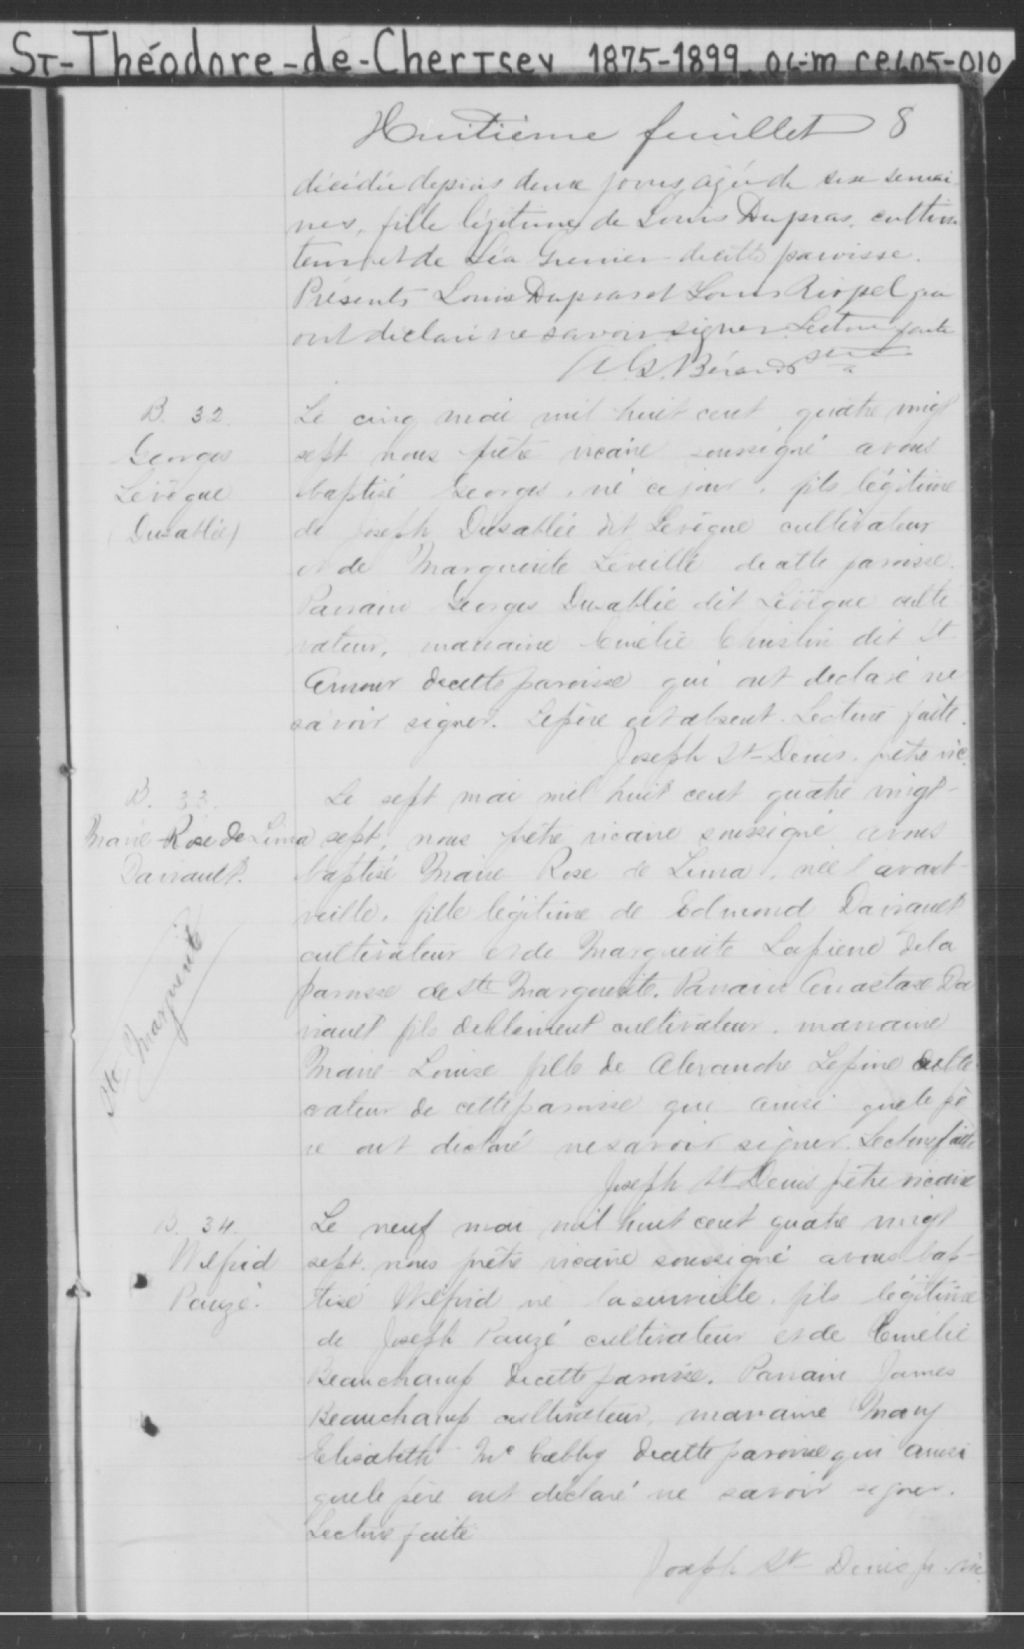 St-Théodore-de-Chertsey 1875-1899 04-m ce605-010
Huitième feuillet 8
décédée depuis deux jours agée de six semai
nes, fille légitime de Louis Dupras, cultiva
teur et de Léa Grenier de cette paroisse.
Présents Louis Dupras et Louis Riopel qui
ont déclaré ne savoir signer. Lecture faite
Bérard ptre
B. 32.
Georges
Lévêque
(Dusablée)
Le cinq mai mil huit cent quatre vingt
sept nous prêtre vicaire soussigné avons
baptisé Georges, né ce jour, fils légitime
de Joseph Dusablée dit Levêque cultivateur
et de Marguerite Léveillé de cette paroisse.
Parrain Georges Dusablée dit Lévêque culti
vateur, marraine Emélie Christin dit St
Amour de cette paroisse qui ont declaré ne
savoir signer. Le père est absent. Lecture faite.
Joseph St-Denis, prêtre vic.
B. 33.
Marie-Rose de Lima
Dairault.
Ste Marguerite
Le sept mai mil huit cent quatre vingt-
sept, nous prêtre vicaire soussigné avons
baptisé Marie Rose de Lima, née l'avant-
veille, fille légitime de Edmond Dairault
cultivateur et de Marguerite Lapierre de la
paroisse de Ste Marguerite. Parrain Anastase Da
riault fils de Clément cultivateur, marraine
Marie-Louise fille de Alexandre Lépine culti
vateur de cette paroisse qui ainsi que le pè
re ont déclaré ne savoir signer. Lecture faite
Joseph St Denis prêtre vicaire
B. 34.
Wilfrid
Pauzé.
Le neuf mai mil huit cent quatre vingt
sept, nous prêtre vicaire soussigné avons bap-
tisé Wilfrid né la surveille, fils légitime
de Joseph Pauzé cultivateur et de Emélie
Beauchamp de cette paroisse. Parrain James
Beauchamp cultivateur, marraine Mary
Elisabeth de cette paroisse qui ainsi
que le père ont déclaré ne savoir signer.
Lecture faite
Joseph St-Denis p. vic.